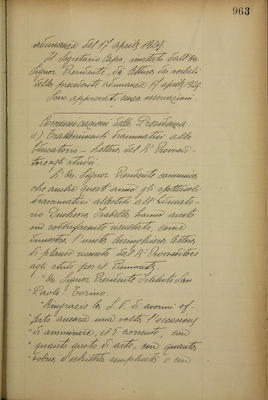 963
adunanza del 17 aprile 1929.
Il Segretario Capo, invitato dall'Ill.
Signor Presidente, dà lettura dei verbali
della precedente adunanza 17 aprile 1929.
Sono approvati senza osservazioni.
Comunicazioni della Presidenza.
a) Trattenimenti drammatici allo
Educatorio - Lettera del R° Provvedi-
tore agli studi
L'Ill. Signor Presidente comunica
che anche quest'anno gli spettacoli
drammatici allestiti all'Educato-
rio Duchessa Isabella hanno avuto
un soddisfacente risultato, come
dimostra l'unita lettera
di plauso ricevuta dal R° Provveditore
agli studi per il Piemonte.
"Ill. Signor Presidente Istituto San
Paolo" Torino.
"Ringrazio la S.V. di avermi of-
"ferto ancora una volta l'occasione
"di ammirare, ed il consente, con
"quanto gusto di arte, con quanta
"nobile e schietta semplicità e con